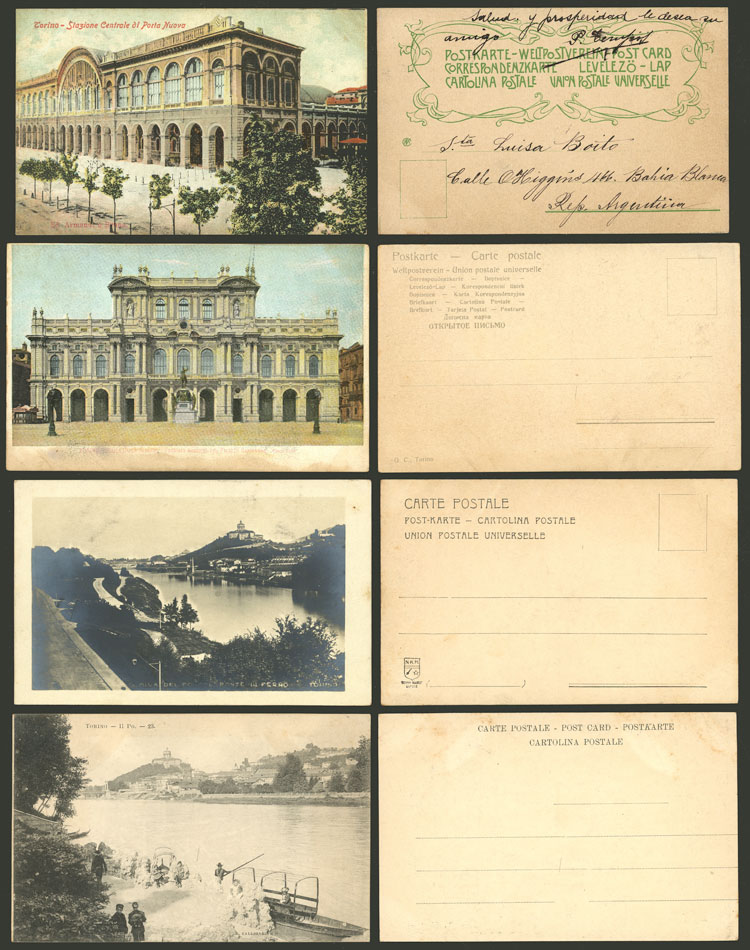 Torino - Stazione Centrale di Porta Nuova
Salud, y prosperidad le desea su
amigo
POSTKARTE-WELTPOSTVEREIN-POST CARD
CORRESPONDENZKARTE LEVELEZÖ-LAP
CARTOLINA POSTALE UNION POSTALE UNIVERSELLE
Sta Luisa Boito
Calle O'Higgins 166. Bahia Blanca
Rep. Argentina
Postkarte — Carte postale
Weltpostverein - Union postale universelle
Correspondentkarte —
Levelező-Lap —
Brefkort — Cartolina Postale —
Brefkort — Tarjeta Postal — Postcard
ОТКРЫТОЕ ПИСЬМО
Torino
CARTE POSTALE
POST-KARTE – CARTOLINA POSTALE
UNION POSTALE UNIVERSELLE
FERRO TORINO
N.R.M
TORINO - Il Po. - 23.
CARTE POSTALE - POST CARD - POSTKARTE
CARTOLINA POSTALE